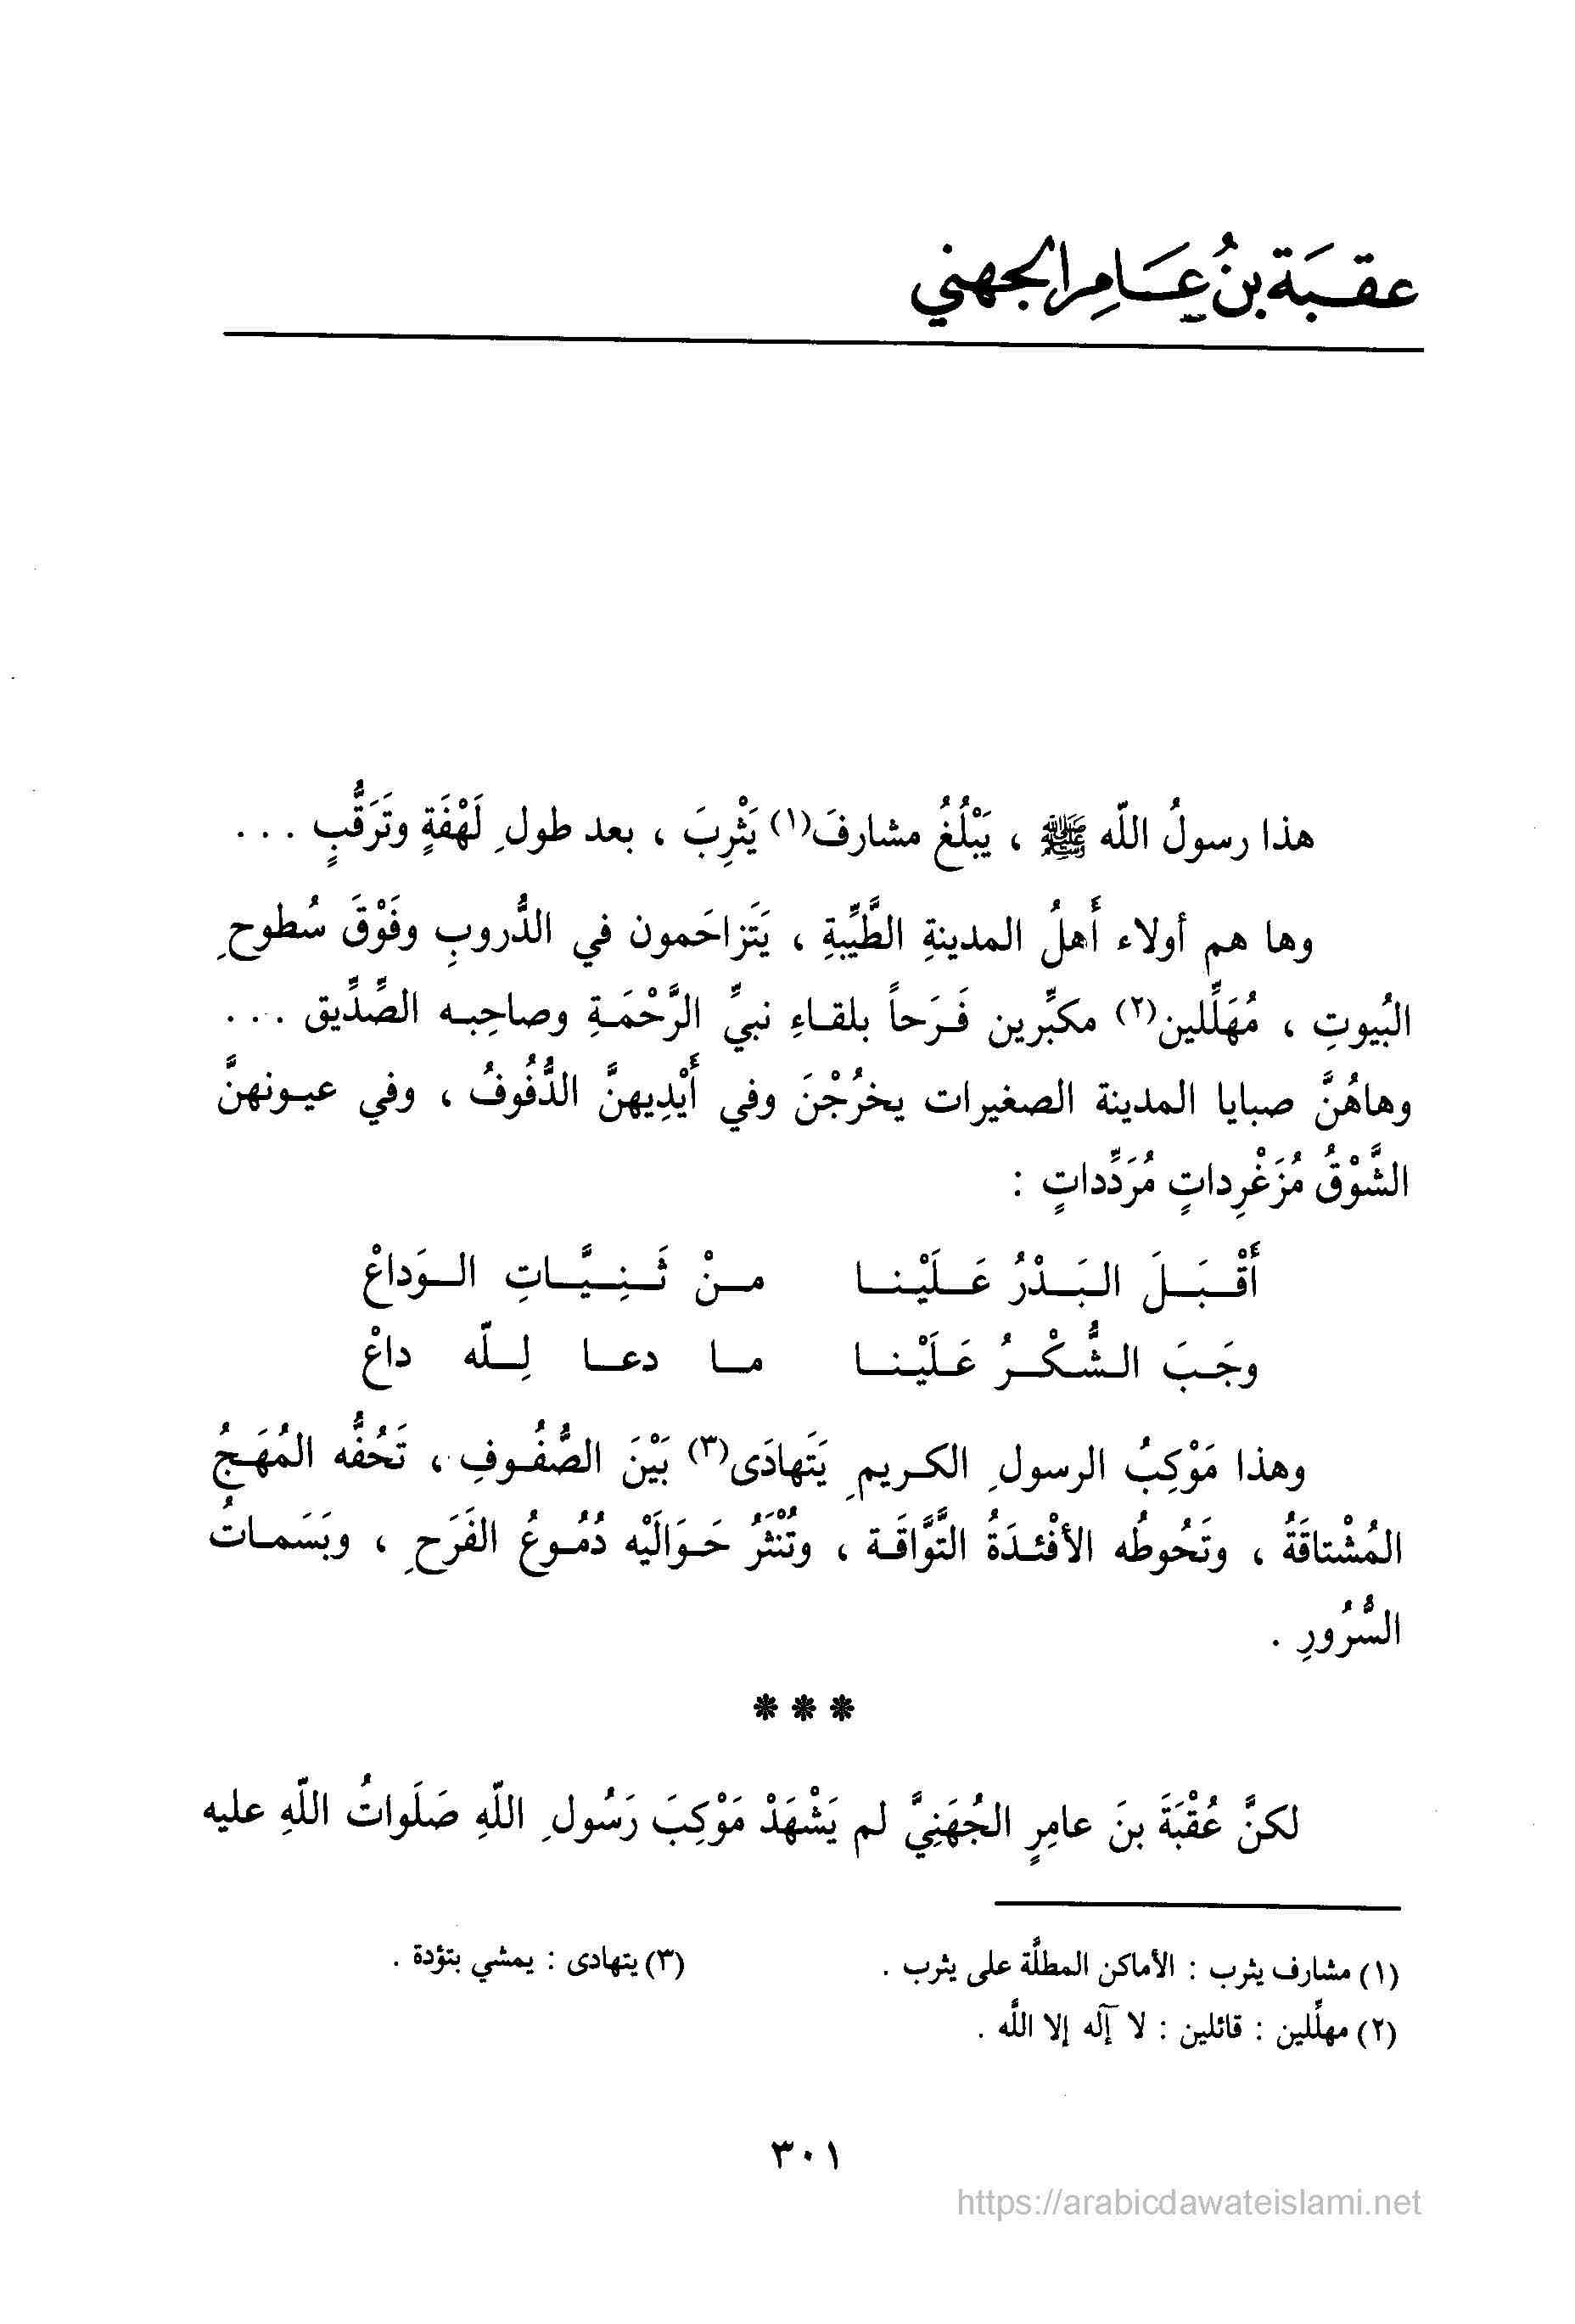 عقبَة بنُ عَامِر الجهني
هذا رسولُ اللّه ﷺ ، يَبْلُغُ مشارفَ(١) يَثْرِبَ ، بعد طولِ لَهْفَةٍ وتَرَقُّبٍ . . .
وها هم أولاء أَهلُ المدينةِ الطَّيِّبةِ ، يَتَزاحَمون في الدُّروبِ وفَوْقَ سُطوحِ
البُيوتِ ، مُهَلِّلين(٢) مكبِّرين فَرَحاً بلقاءِ نبيِّ الرَّحْمَةِ وصاحِبه الصِّدِّيق . . .
وهاهُنَّ صبايا المدينة الصغيرات يخرُجْنَ وفي أَيْدِيهنَّ الدُّفُوفُ ، وفي عيونهنَّ
الشَّوْقُ مُزَغْرِداتٍ مُرَدِّداتٍ :
أَقْبَلَ البَدْرُ عَلَيْنا منْ ثَنِيَّاتِ الوَداعْ
وجَبَ الشُّكْرُ عَلَيْنا ما دعا لِلّه داعْ
وهذا مَوْكِبُ الرسولِ الكريمِ يَتَهادَى(٣) بَيْنَ الصُّفُوفِ ، تَحُفُّه المُهَجُ
المُشْتاقَةُ ، وتَحُوطُه الأفْئدَةُ التَّوَّاقَة ، وتُنْثَرُ حَوَالَيْه دُمُوعُ الفَرَحِ ، وبَسَماتُ
السُّرُورِ .
* * *
لكنَّ عُقْبَةَ بنَ عامِرٍ الجُهَنِيَّ لم يَشْهَدْ مَوْكِبَ رَسُولِ اللّهِ صَلَواتُ اللّهِ عليه
(١) مشارف يثرب : الأماكن المطلَّة على يثرب .
(٢) مهلِّلين : قائلين : لا إٓله إلا اللَّه .
(٣) يتهادى : يمشي بتؤدة .
٣٠١
https://arabicdawateislami.net